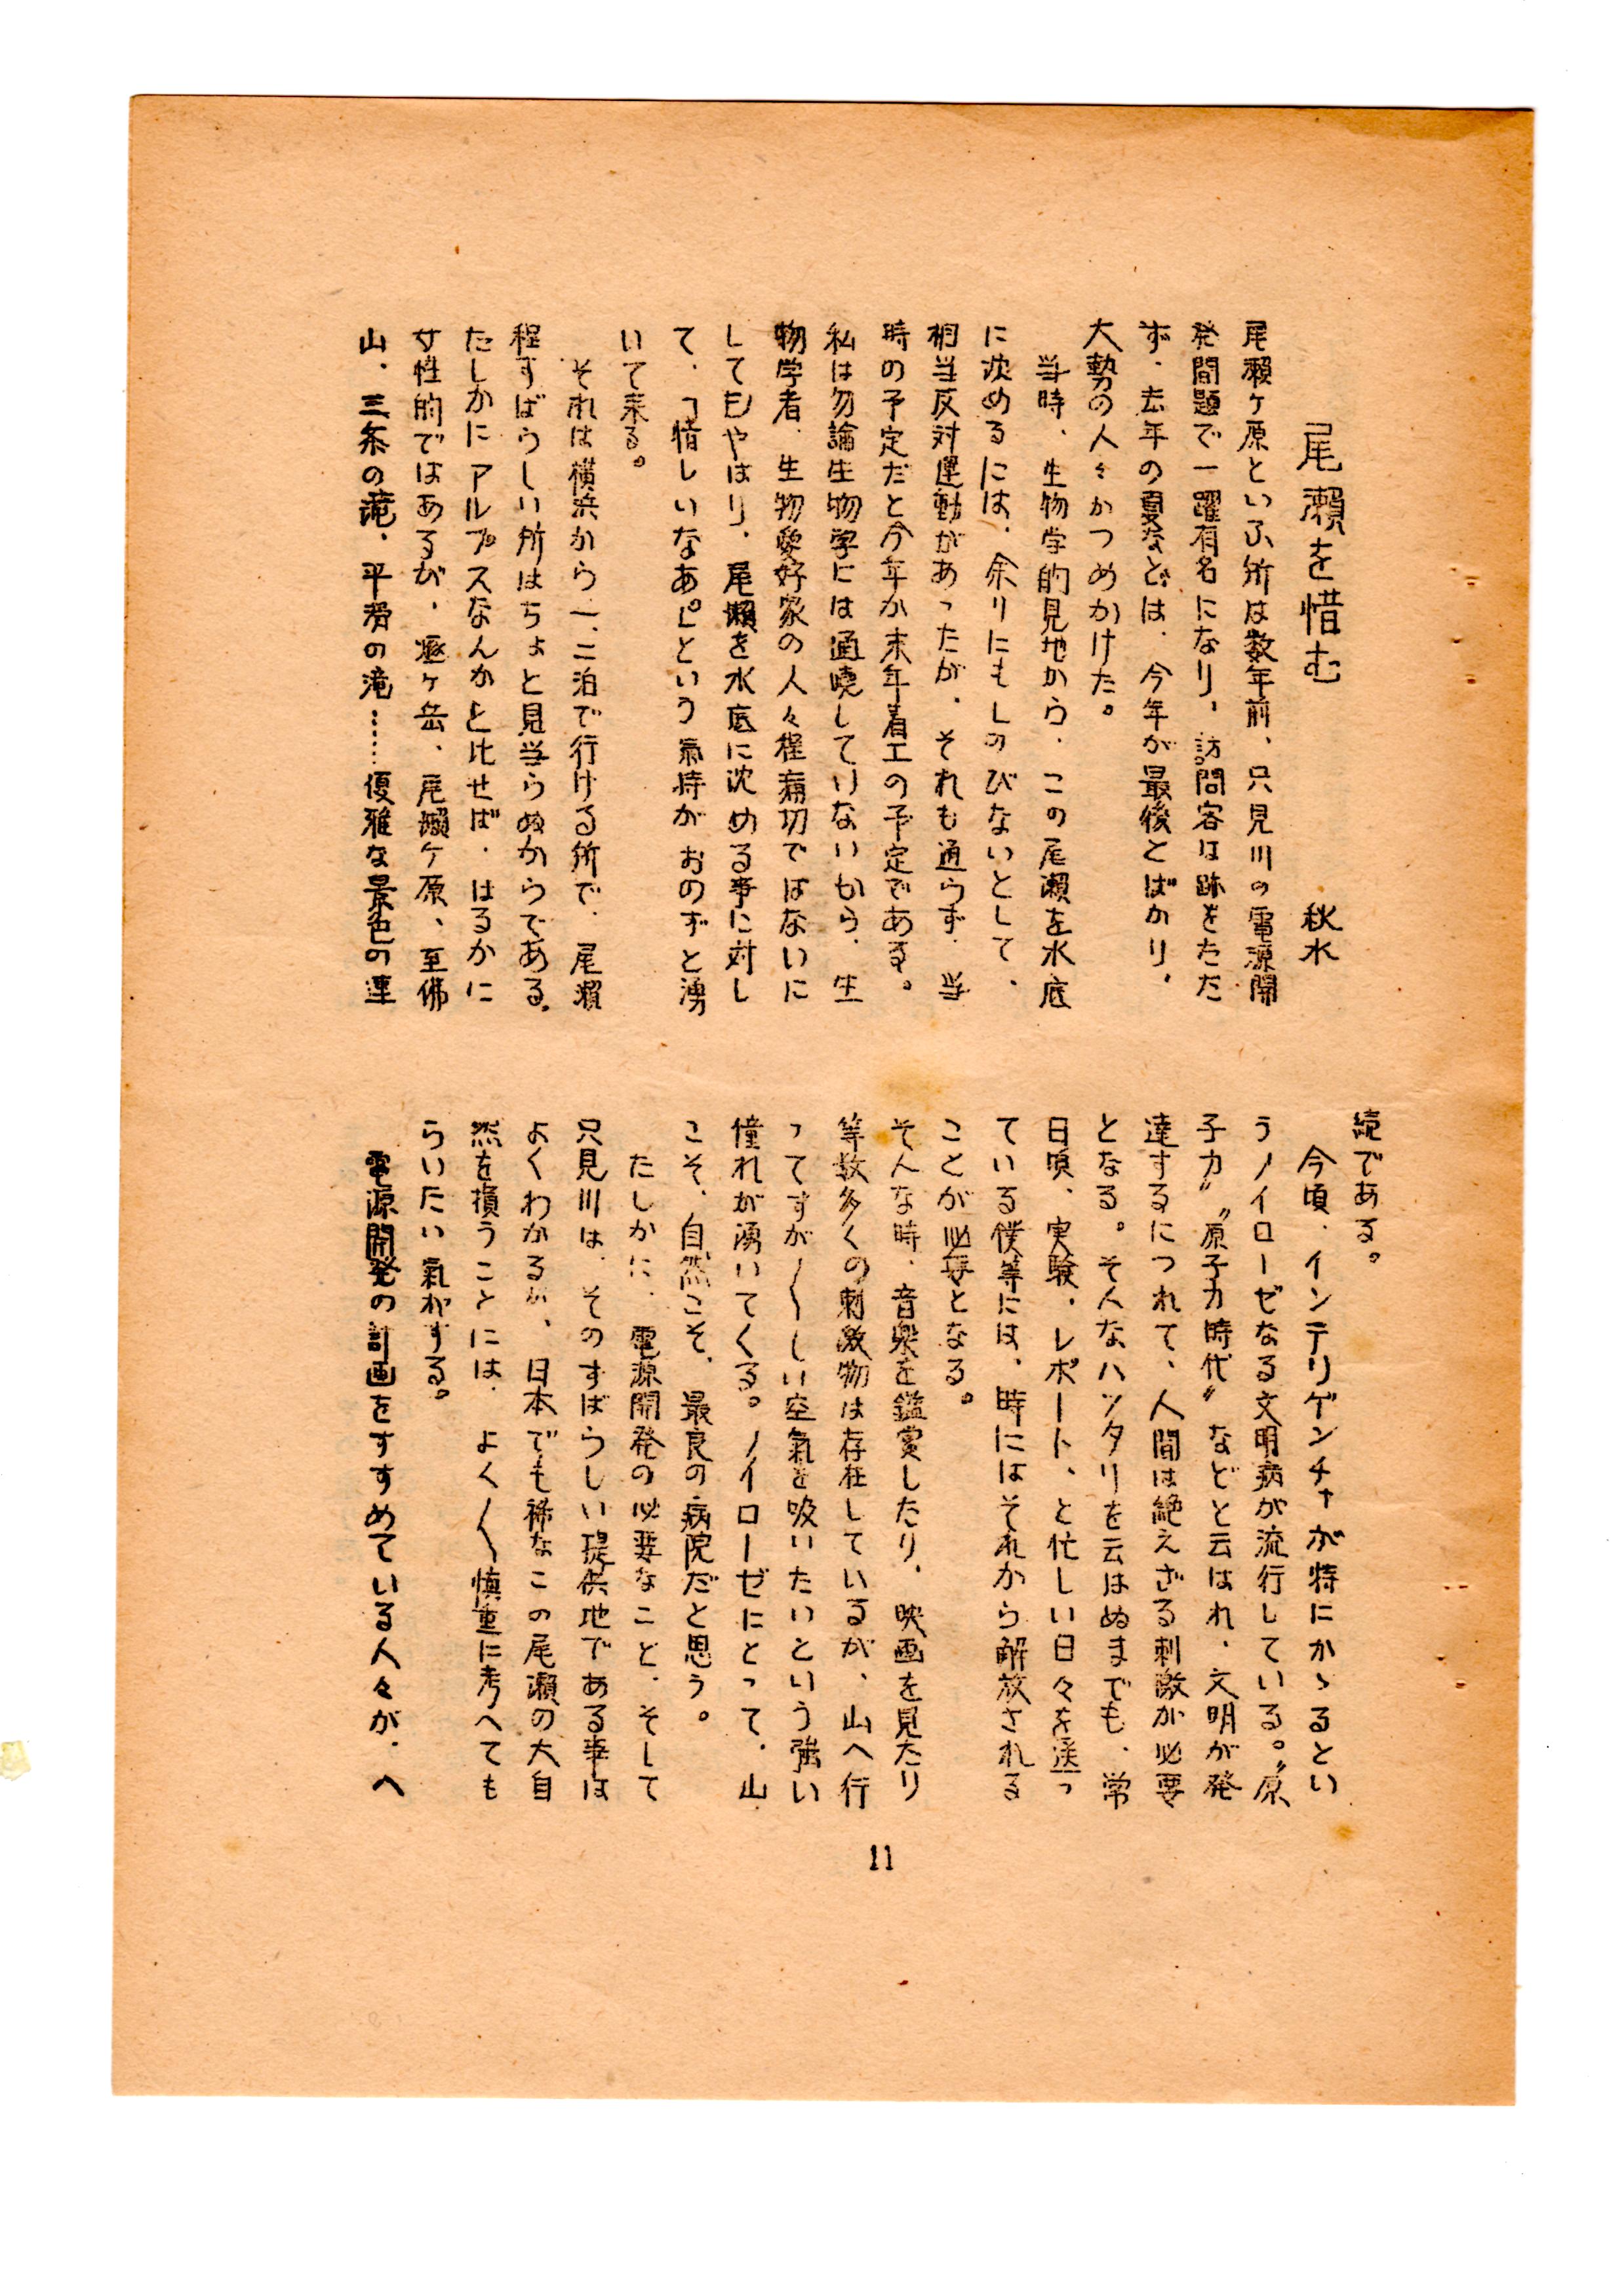 尾瀬を惜む　秋水
尾瀬ヶ原といふ所は数年前、只見川の電源開
発間題で一躍有名になり、訪問客は跡をたた
ず、去年の夏などは、今年が最後とばかり、
大勢の人々がつめかけた。
当時、生物学的見地から、この尾瀬を水底
に沈めるには、余りにもしのびないとして、
相当反対運動があったが、それも通らず、当
時の予定だと今年か来年着工の予定である。
私は勿論生物学には通暁していないから、生
物学者、生物愛好家の人々程痛切ではないに
してもやはり、尾瀬を水底に沈める事に対し
て、「惜しいなあ。」という氣持がおのずと湧
いて来る。
それは横浜から一、二泊で行ける所で、尾瀬
程すばらしい所はちょと見当らぬからである。
たしかにアルプスなんかと比せば、はるかに
女性的ではあるが、燧ヶ岳、尾瀬ヶ原、至佛
山、三条の滝、平滑の滝……優雅な景色の連
続である。
今頃、インテリゲンチャが特にかゝるとい
うノイローゼなる文明病が流行している。〃原
子力〃〃原子力時代〃などと云はれ、文明が発
達するにつれて、人間は絶えざる刺激が必要
となる。そんなハッタリを云はぬまでも、常
日頃、実験、レポート、と忙しい日々を送っ
ている僕等には、時にはそれから解放される
ことが必要となる。
そんな時、音樂を鑑賞したり、映画を見たり
等数多くの刺激物は存在しているが、山へ行
ってすが〱しい空氣を吸いたいという強い
憧れが湧いてくる。ノイローゼにとって、山
こそ、自然こそ、最良の病院だと思う。
たしかに、電源開発の必要なこと、そして
只見川は、そのすばらしい提供地である事は
よくわかるが、日本でも稀なこの尾瀬の大自
然を損うことには、よく〱慎重に考へても
らいたい氣がする。
電源開発の計画をすすめている人々が、へ
11